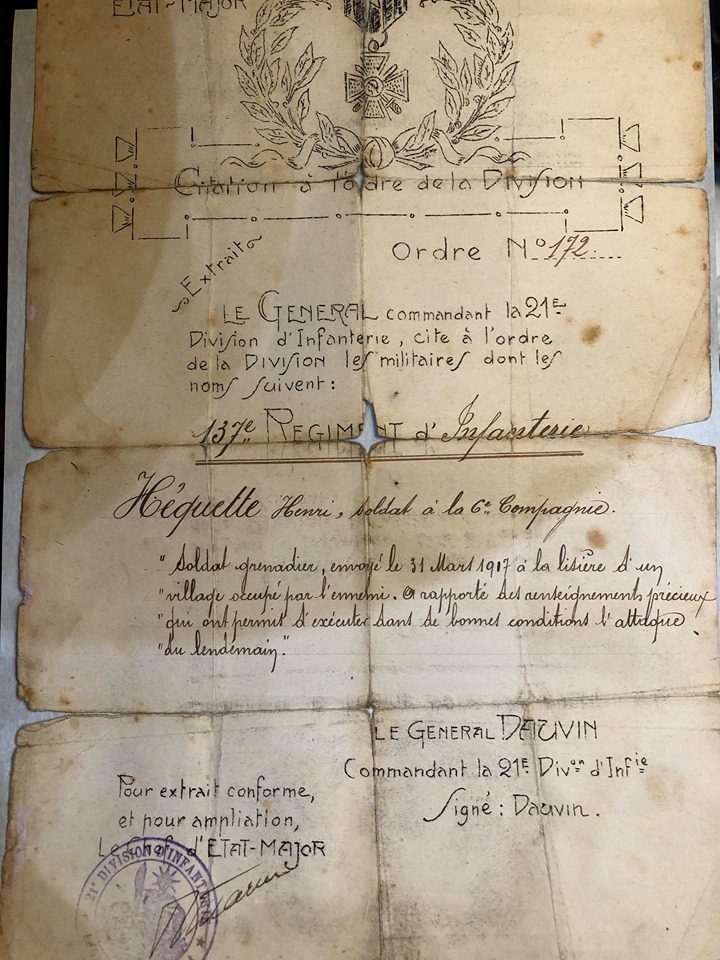 ETAT-MAJOR
Citation à l'ordre de la Division
Extrait
Ordre N° 172
LE GENERAL commandant la 21E
Division d'Infanterie, cite à l'ordre
de la DIVISION les militaires dont les
noms suivent:
137e REGIMENT d'Infanterie
Héquette Henri, soldat à la 6e Compagnie.
"Soldat grenadier, envoyé le 31 Mars 1917 à la lisière d'un
"village occupé par l'ennemi. A rapporté des renseignements précieux
"qui ont permit d'exécuter dans de bonnes conditions l'attaque
"du lendemain."
LE GENERAL DAUVIN
Commandant la 21E Divon d'Infie
Signé: Dauvin.
Pour extrait conforme,
et pour ampliation,
Le Chef d'ETAT-MAJOR
21e DIVISION D'INFANTERIE